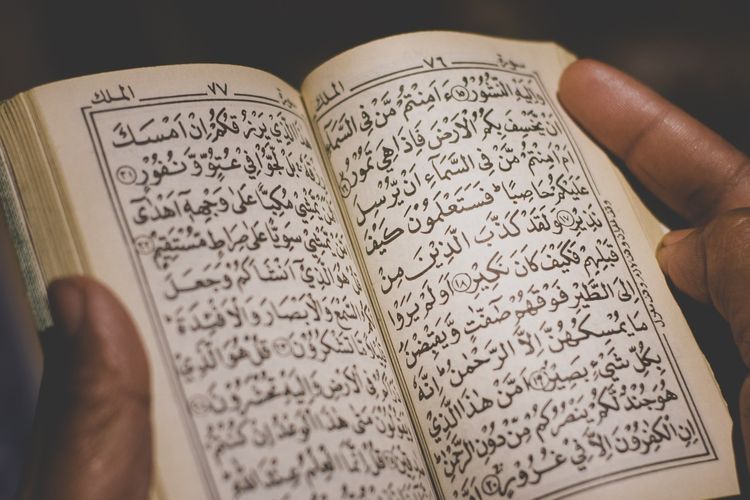 سورة ٧٦ الملك
وَاِلَيْهِ النُّشُوْرُ ١٥ ءَاَمِنْتُمْ مَّنْ فِي السَّمَآءِ
اَنْ يَّخْسِفَ بِكُمُ الْاَرْضَ فَاِذَا هِيَ تَمُوْرُ ١٦
اَمْ اَمِنْتُمْ مَّنْ فِي السَّمَآءِ اَنْ يُّرْسِلَ
عَلَيْكُمْ حَاصِبًا ؕ فَسَتَعْلَمُوْنَ كَيْفَ
نَذِيْرِ ١٧ وَلَقَدْ كَذَّبَ الَّذِيْنَ مِنْ
قَبْلِهِمْ فَكَيْفَ كَانَ نَكِيْرِ ١٨ اَوَلَمْ يَرَوْا
اِلَى الطَّيْرِ فَوْقَهُمْ صٰٓفّٰتٍ وَّيَقْبِضْنَ
مَا يُمْسِكُهُنَّ اِلَّا الرَّحْمٰنُ ؕ اِنَّهٗ
بِكُلِّ شَيْءٍۭ بَصِيْرٌ ١٩ اَمَّنْ هٰذَا الَّذِيْ
هُوَ جُنْدٌ لَّكُمْ يَنْصُرُكُمْ مِّنْ دُوْنِ الرَّحْمٰنِ ؕ
اِنِ الْكٰفِرُوْنَ اِلَّا فِيْ غُرُوْرٍ ٢٠
سورة ٧٧ الملك
الَّذِيْ يَرْزُقُكُمْ اِنْ اَمْسَكَ
بَلْ لَّجُّوْا فِيْ عُتُوٍّ وَّنُفُوْرٍ ٢١
يَّمْشِيْ مُكِبًّا عَلٰى وَجْهِهٖٓ اَهْدٰٓى
يَّمْشِيْ سَوِيًّا عَلٰى صِرَاطٍ مُّسْتَقِيْمٍ ٢٢
قُلْ هُوَ الَّذِيْٓ اَنْشَاَكُمْ وَجَعَلَ
السَّمْعَ وَالْاَبْصَارَ وَالْاَفْـِٕدَةَ ؕ
مَّا تَشْكُرُوْنَ ٢٣ قُلْ هُوَ الَّذِيْ
فِي الْاَرْضِ وَاِلَيْهِ تُحْشَرُوْنَ ٢٤
وَيَقُوْلُوْنَ مَتٰى هٰذَا الْوَعْدُ اِنْ كُنْتُمْ
قُلْ اِنَّمَا الْعِلْمُ عِنْدَ اللّٰهِ